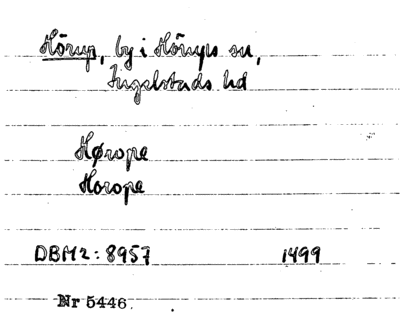 Hörup, by i Hörups sn,
Ingelstads hd
Hørope
Horope
DBM2:8957 1499
Nr 5446.